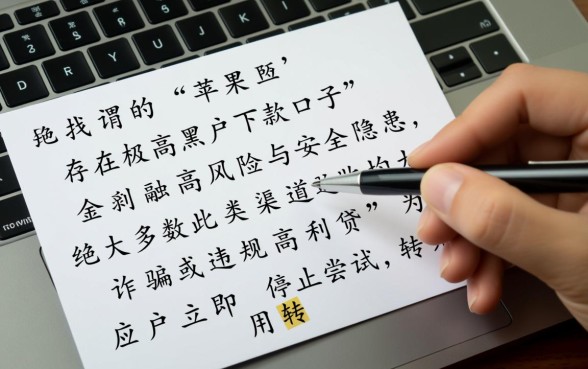 找谓的“苹果
存在极高黑户下款口子”
金剥融高风险与安全隐患，
绝大多数此类渠道
诈骗或违规高利贷”为
应户立即 停止尝试，转
用转